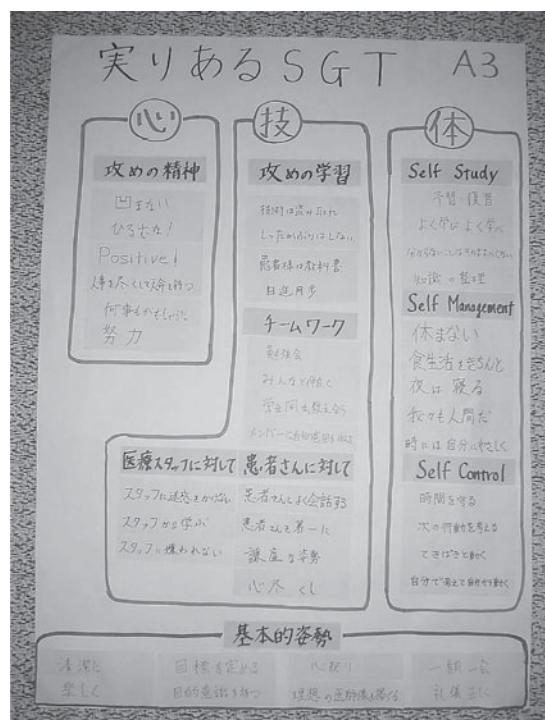 実りあるSGT A3
心
攻めの精神
凹まない
ひるむな!
Positive!
人事を尽くして天命を待つ
何事もがむしゃらに
努力
技
攻めの学習
技術は盗み取れ
しったかぶりはしない
患者様は教科書
日進月歩
チームワーク
勉強会
みんなと仲良く
学生同士教え合う
医療スタッフに対して
スタッフに迷惑をかけない
スタッフから学ぶ
スタッフに嫌われない
患者さんに対して
患者さんとよく会話する
患者さんを第一に
謙虚な姿勢
心尽くし
体
Self Study
予習・復習
よく学びよく学べ
分からないことはそのままにしない
知識の整理
Self Management
休まない
食生活をきちんと
夜は寝る
我々も人間だ
時には自分にやさしく
Self Control
時間を守る
次の行動を考える
てきぱきと動く
自分で考えて自分から動く
基本的姿勢
清潔に
楽しく
目標を定める
目的意識を持つ
心配り
理想の医師像を
一期一会
礼儀正しく